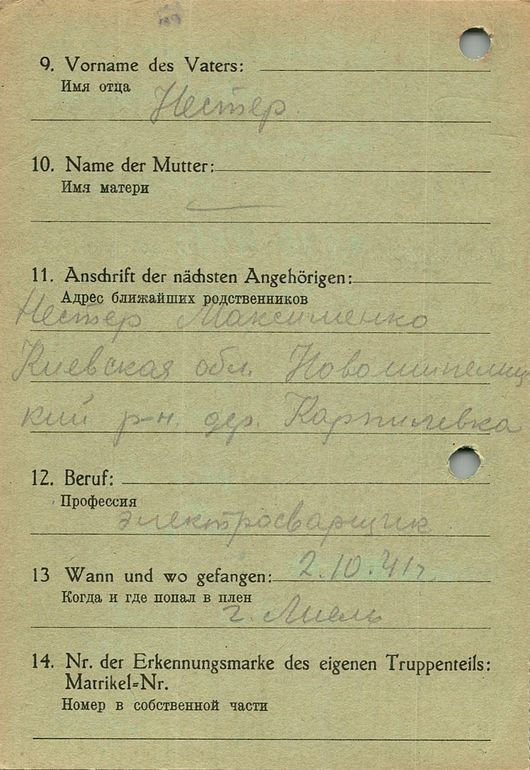 9. Vorname des Vaters:
Имя отца
Нестер.
10. Name der Mutter:
Имя матери
11. Anschrift der nächsten Angehörigen:
Адрес ближайших родственников
Нестер Максименко
Киевская обл. Новошипелиц
кий р-н. дер. Карпилевка
12. Beruf:
Профессия
электросварщик.
13 Wann und wo gefangen: 2.10.41г
Когда и где попал в плен
г.
14. Nr. der Erkennungsmarke des eigenen Truppenteils:
Matrikel=Nr.
Номер в собственной части